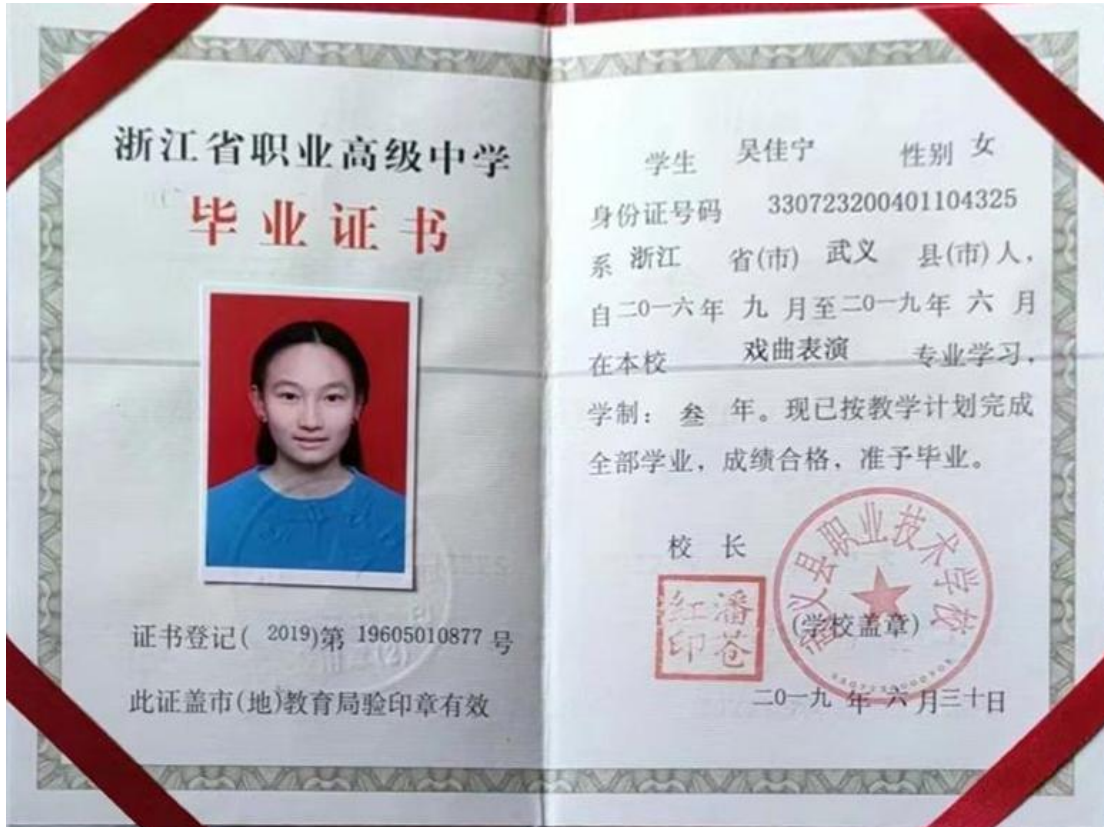 浙江省职业高级中学
毕业证书
证书登记( 2019)第 19605010877 号
此证盖市(地)教育局验印章有效
学生 吴佳宁 性别 女
身份证号码 330723200401104325
系 浙江 省(市) 武义 县(市)人,
自二0一六年 九 月至二0一九年 六 月
在本校 戏曲表演 专业学习,
学制: 叁 年。现已按教学计划完成
全部学业,成绩合格,准予毕业。
校 长
潘苍红印
武义县职业技术学校
(学校盖章)
二0一九 年 六 月三十日